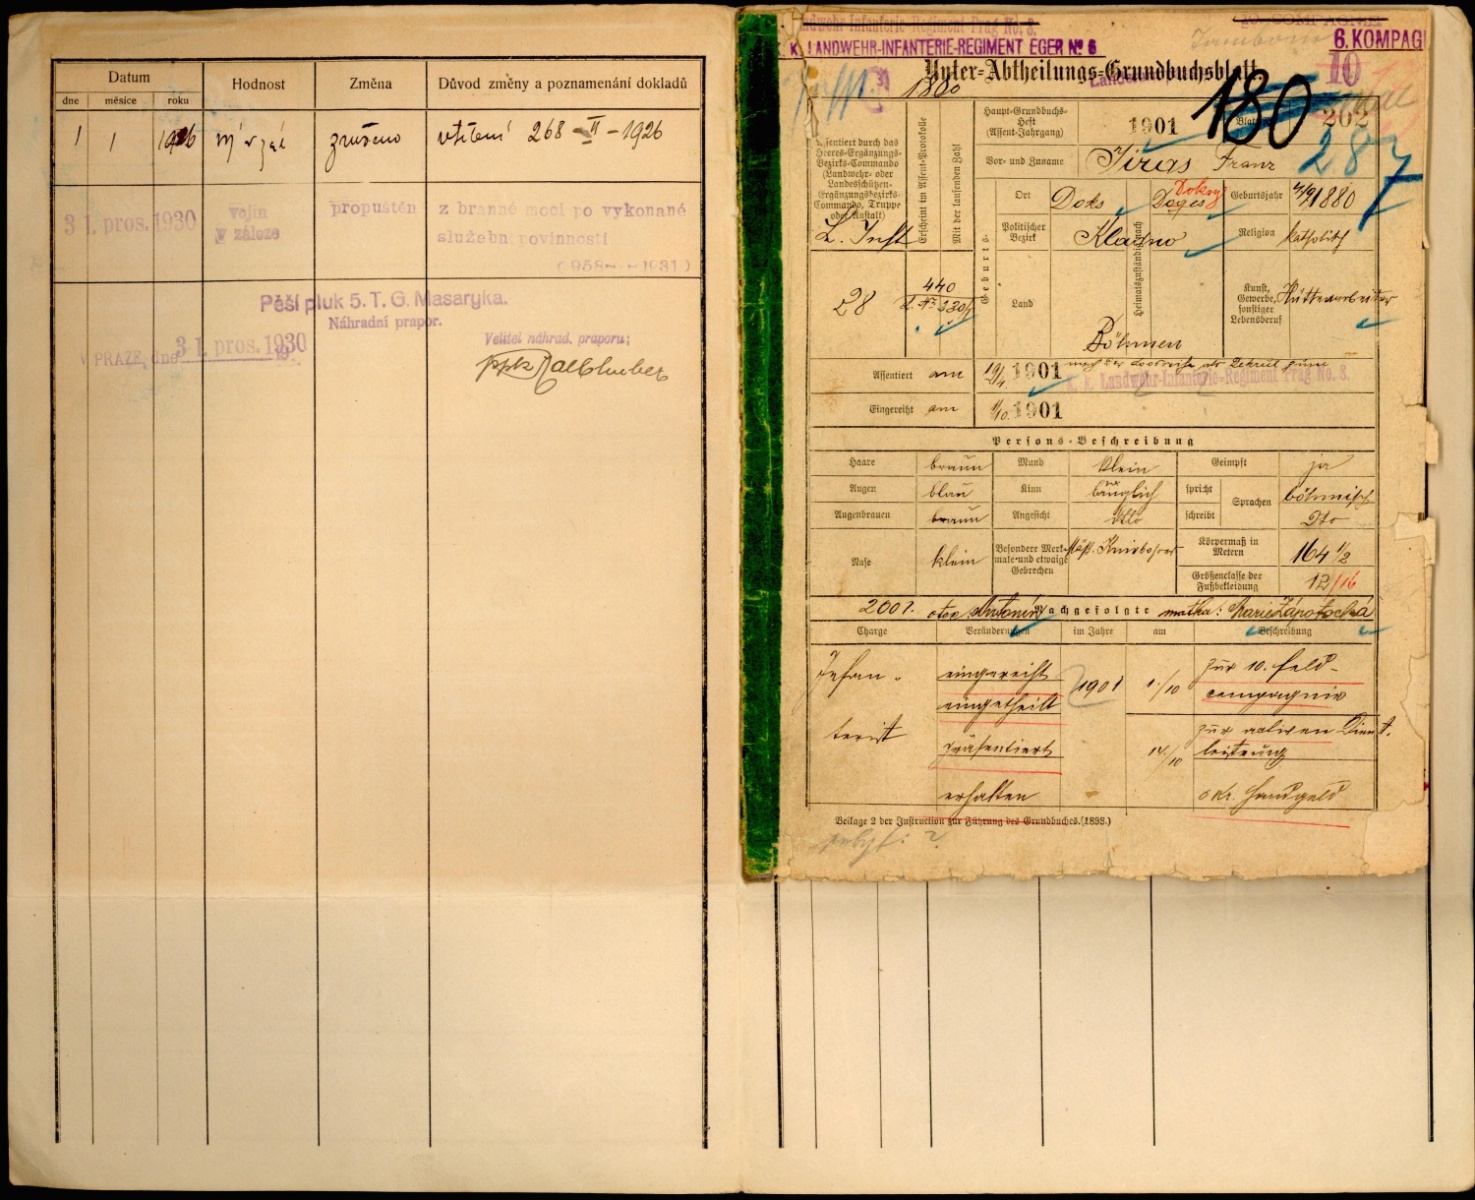 Datum
Hodnost
Změna
Důvod změny a poznamenání dokladů
dne měsíce roku
1 1 1926 zrušeno vtělení 268-II-1926
31. pros. 1930 vojín propuštěn z branné moci po vykonané
v záloze služební povinnosti
(958- -1931)
Pěší pluk 5. T. G. Masaryka.
Náhradní prapor.
V PRAZE, dne 31. pros. 1930 19
Velitel náhrad. praporu:
Landwehr-Infanterie-Regiment Prag No. 8.
10. COMPAGNIE
K. K. LANDWEHR-INFANTERIE-REGIMENT EGER No 6
6. KOMPAG
Unter-Abtheilungs-Grundbuchsblatt.
10
1880
180
Assentiert durch das Heeres-Ergänzungs-Bezirks-Commando (Landwehr- oder Landesschützen-Ergänzungsbezirks-Commando, Truppe oder Anstalt)
Erscheint im Assent-Protokolle
Mit der laufenden Zahl
Haupt-Grundbuchs-Heft (Assent-Jahrgang)
1901
Blatt
202
287
Vor- und Zuname
Jiras Franz
Geburts-
Ort
Doks
Heimatszuständig nach
Doksy
Geburtsjahr
1880
Politischer Bezirk
Kladno
Religion
katholisch
28
440
Land
Böhmen
Kunst, Gewerbe, sonstiger Lebensberuf
Hüttenarbeiter
Assentiert am
19/4 1901
k. k. Landwehr-Infanterie-Regiment Prag No. 8.
Eingereiht am
1/10. 1901
Persons-Beschreibung
Haare braun Mund klein Geimpft ja
Augen blau Kinn länglich spricht Sprachen böhmisch
Augenbrauen braun Angesicht dtto schreibt Dto
Nase klein Besondere Merkmale und etwaige Gebrechen
Körpermaß in Metern 164 1/2
Größenclasse der Fußbekleidung 12/16
2001. otec Antonín Nachgefolgte matka: Marie Zápotocká
Charge Veränderungen im Jahre am Beschreibung
Infan- eingereiht 1901 1./10 zur 10. Feld-
eingetheilt compagnie
terist präsentiert 14/10 zur activen Dienst-
leistung
erhalten 0 Kr. Handgeld
Beilage 2 der Instruction zur Führung des Grundbuches. (1898.)